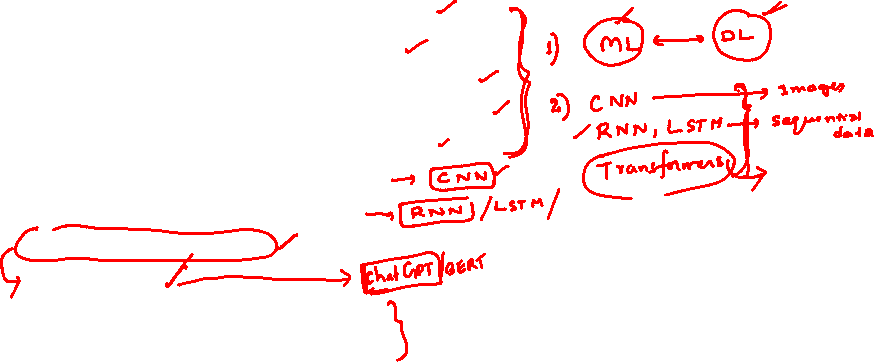 1) ML DL
2) CNN Images
RNN, LSTM Sequential data
Transformers
CNN
RNN / LSTM /
ChatGPT/BERT